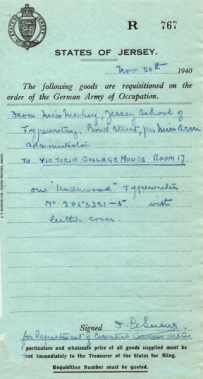 R 767
STATES OF JERSEY.
Nov 20th 1940
The following goods are requisitioned on the
order of the German Army of Occupation.
From Miss Jersey School of
Typewriting, Street, per Miss
administrator
TO VICTORIA COLLEGE HOUSE. ROOM 17
one "Underwood" Typewriter
Nº with
leather cover.
Signed
for Department of Essential
particulars and wholesale price of all goods supplied must be
sent immediately to the Treasurer of the States for filing.
Requisition Number must be quoted.